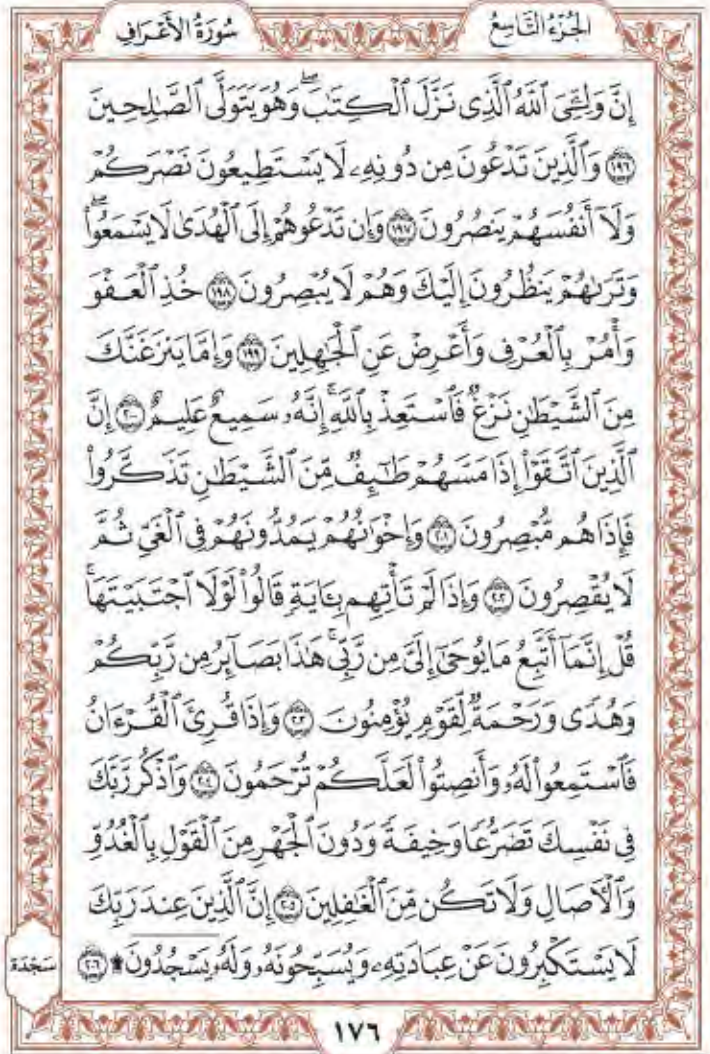 الجُزْءُ التَّاسِعُ
سُورَةُ الأَعْرَافِ
إِنَّ وَلِـِّۧيَ ٱللَّهُ ٱلَّذِي نَزَّلَ ٱلْكِتَٰبَۖ وَهُوَ يَتَوَلَّى ٱلصَّٰلِحِينَ
١٩٦ وَٱلَّذِينَ تَدْعُونَ مِن دُونِهِۦ لَا يَسْتَطِيعُونَ نَصْرَكُمْ
وَلَآ أَنفُسَهُمْ يَنصُرُونَ ١٩٧ وَإِن تَدْعُوهُمْ إِلَى ٱلْهُدَىٰ لَا يَسْمَعُوا۟ۖ
وَتَرَىٰهُمْ يَنظُرُونَ إِلَيْكَ وَهُمْ لَا يُبْصِرُونَ ١٩٨ خُذِ ٱلْعَفْوَ
وَأْمُرْ بِٱلْعُرْفِ وَأَعْرِضْ عَنِ ٱلْجَٰهِلِينَ ١٩٩ وَإِمَّا يَنزَغَنَّكَ
مِنَ ٱلشَّيْطَٰنِ نَزْغٌ فَٱسْتَعِذْ بِٱللَّهِۚ إِنَّهُۥ سَمِيعٌ عَلِيمٌ ٢٠٠ إِنَّ
ٱلَّذِينَ ٱتَّقَوْا۟ إِذَا مَسَّهُمْ طَٰٓئِفٌ مِّنَ ٱلشَّيْطَٰنِ تَذَكَّرُوا۟
فَإِذَا هُم مُّبْصِرُونَ ٢٠١ وَإِخْوَٰنُهُمْ يَمُدُّونَهُمْ فِي ٱلْغَيِّ ثُمَّ
لَا يُقْصِرُونَ ٢٠٢ وَإِذَا لَمْ تَأْتِهِم بِـَٔايَةٍ قَالُوا۟ لَوْلَا ٱجْتَبَيْتَهَاۚ
قُلْ إِنَّمَآ أَتَّبِعُ مَا يُوحَىٰٓ إِلَيَّ مِن رَّبِّيۚ هَٰذَا بَصَآئِرُ مِن رَّبِّكُمْ
وَهُدًى وَرَحْمَةٌ لِّقَوْمٍ يُؤْمِنُونَ ٢٠٣ وَإِذَا قُرِئَ ٱلْقُرْءَانُ
فَٱسْتَمِعُوا۟ لَهُۥ وَأَنصِتُوا۟ لَعَلَّكُمْ تُرْحَمُونَ ٢٠٤ وَٱذْكُر رَّبَّكَ
فِي نَفْسِكَ تَضَرُّعًا وَخِيفَةً وَدُونَ ٱلْجَهْرِ مِنَ ٱلْقَوْلِ بِٱلْغُدُوِّ
وَٱلْءَاصَالِ وَلَا تَكُن مِّنَ ٱلْغَٰفِلِينَ ٢٠٥ إِنَّ ٱلَّذِينَ عِندَ رَبِّكَ
لَا يَسْتَكْبِرُونَ عَنْ عِبَادَتِهِۦ وَيُسَبِّحُونَهُۥ وَلَهُۥ يَسْجُدُونَ ۩ ٢٠٦
سَجْدَة
١٧٦